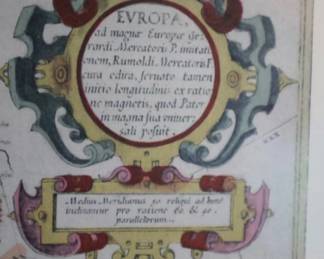 EVROPA,
ad magnæ Europæ Ge=
rardi Mercatoris P. imitati
onem, Rumoldi Mercatoris F.
cura edita, servato tamen
initio longitudinis ex ratio
ne magnetis, quod Pater
in magna sua univer=
sali posuit.
Medius Meridianus 50. reliqui ad hunc
inclinantur pro ratione 60. & 40.
parallelorum.